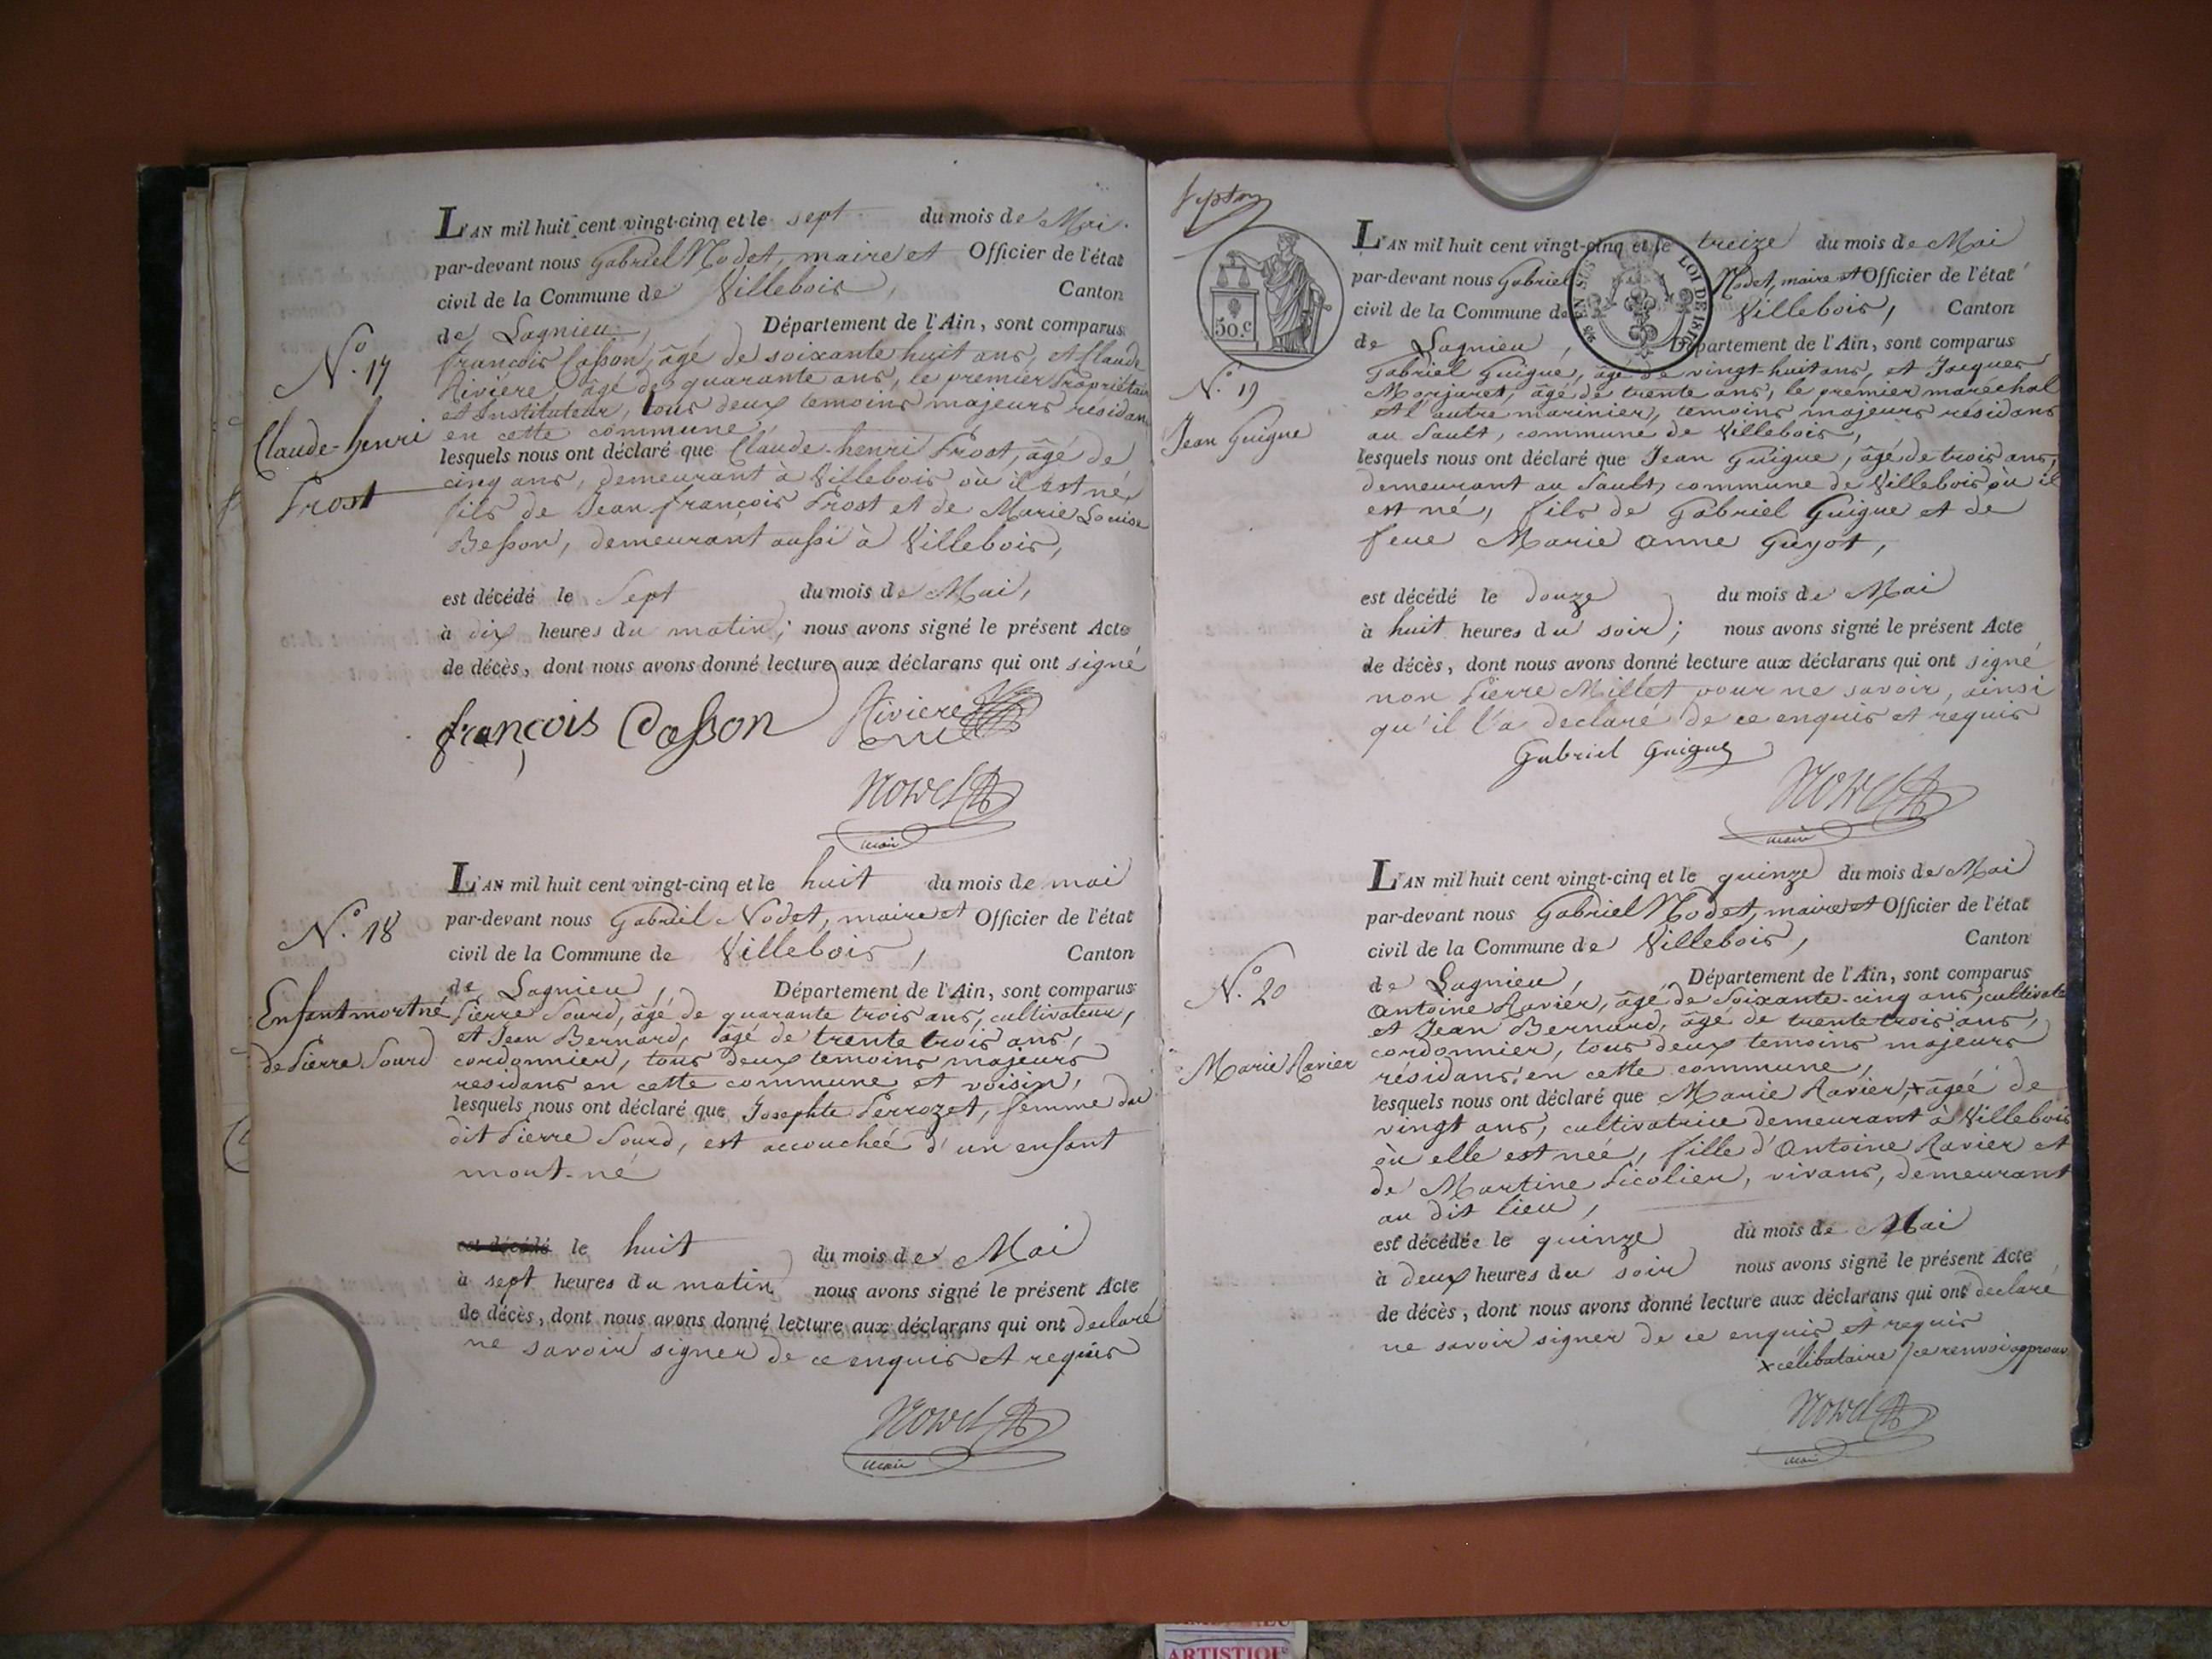 L'AN mil huit cent vingt-cinq et le sept du mois de Mai
par-devant nous Gabriel Nodet, maire et Officier de l'état
civil de la Commune de Villebois, Canton
de Lagnieu, Département de l'Ain, sont comparus
N.o 17
Claude-henri
Prost
françois Casson, âgé de soixante huit ans, et Claude
Rivière, âgé de quarante ans, le premier Propriétaire
et Instituteur, tous deux temoins majeurs résidans
en cette commune,
lesquels nous ont déclaré que Claude-henri Prost, âgé de
cinq ans, demeurant à Villebois où il est né,
fils de Jean françois Prost et de Marie Louise
Besson, demeurant aussi à Villebois,
est décédé le Sept du mois de Mai,
à dix heures du matin; nous avons signé le présent Acte
de décès, dont nous avons donné lecture aux déclarans qui ont signé
françois Casson Riviere
Nodet
maire
L'AN mil huit cent vingt-cinq et le huit du mois de mai
par-devant nous Gabriel Nodet, maire et Officier de l'état
civil de la Commune de Villebois, Canton
de Lagnieu, Département de l'Ain, sont comparus
N.o 18
Enfant mort né
de Pierre Sourd
Pierre Sourd, âgé de quarante trois ans, cultivateur,
et Jean Bernard, âgé de trente trois ans,
cordonnier, tous deux temoins majeurs
residans en cette commune et voisin,
lesquels nous ont déclaré que Josephte Perrozet, femme du
dit Pierre Sourd, est accouchée d'un enfant
mort-né
est décédé le huit du mois de Mai
à sept heures du matin nous avons signé le présent Acte
de décès, dont nous avons donné lecture aux déclarans qui ont declaré
ne savoir signer de ce enquis et requis
Nodet
maire
50.c
EN SUS
LOI DE 1816
L'AN mil huit cent vingt-cinq et le treize du mois de Mai
par-devant nous Gabriel Nodet, maire et Officier de l'état
civil de la Commune de Villebois, Canton
de Lagnieu, Département de l'Ain, sont comparus
N.o 19
Jean Guigue
Gabriel Guigue, âgé de vingt-huit ans, et Jacques
Morjaret, âgé de trente ans, le premier maréchal
et l'autre marinier, temoins majeurs résidans
au Sault, commune de Villebois,
lesquels nous ont déclaré que Jean Guigue, âgé de trois ans,
demeurant au Sault, commune de Villebois où il
est né, fils de Gabriel Guigue et de
feue Marie anne Guyot,
est décédé le douze du mois de Mai
à huit heures du soir; nous avons signé le présent Acte
de décès, dont nous avons donné lecture aux déclarans qui ont signé
non Pierre Millet pour ne savoir, ainsi
qu'il l'a declaré de ce enquis et requis
Gabriel Guigue
Nodet
maire
L'AN mil huit cent vingt-cinq et le quinze du mois de Mai
par-devant nous Gabriel Nodet, maire et Officier de l'état
civil de la Commune de Villebois, Canton
de Lagnieu, Département de l'Ain, sont comparus
N.o 20
Marie Ravier
Antoine Ravier, âgé de Soixante-cinq ans, cultivate
et Jean Bernard, âgé de trente trois ans,
cordonnier, tous deux temoins majeurs
résidans en cette commune,
lesquels nous ont déclaré que Marie Ravier, x âgée de
vingt ans, cultivatrice demeurant à Villebois
où elle est née, fille d'Antoine Ravier et
de Martine Picolier, vivans, demeurant
au dit lieu,
est décédée le quinze du mois de Mai
à deux heures du soir nous avons signé le présent Acte
de décès, dont nous avons donné lecture aux déclarans qui ont declaré
ne savoir signer de ce enquis et requis
x célibataire / ce renvoi approuv
Nodet
maire
ARTISTIQUE